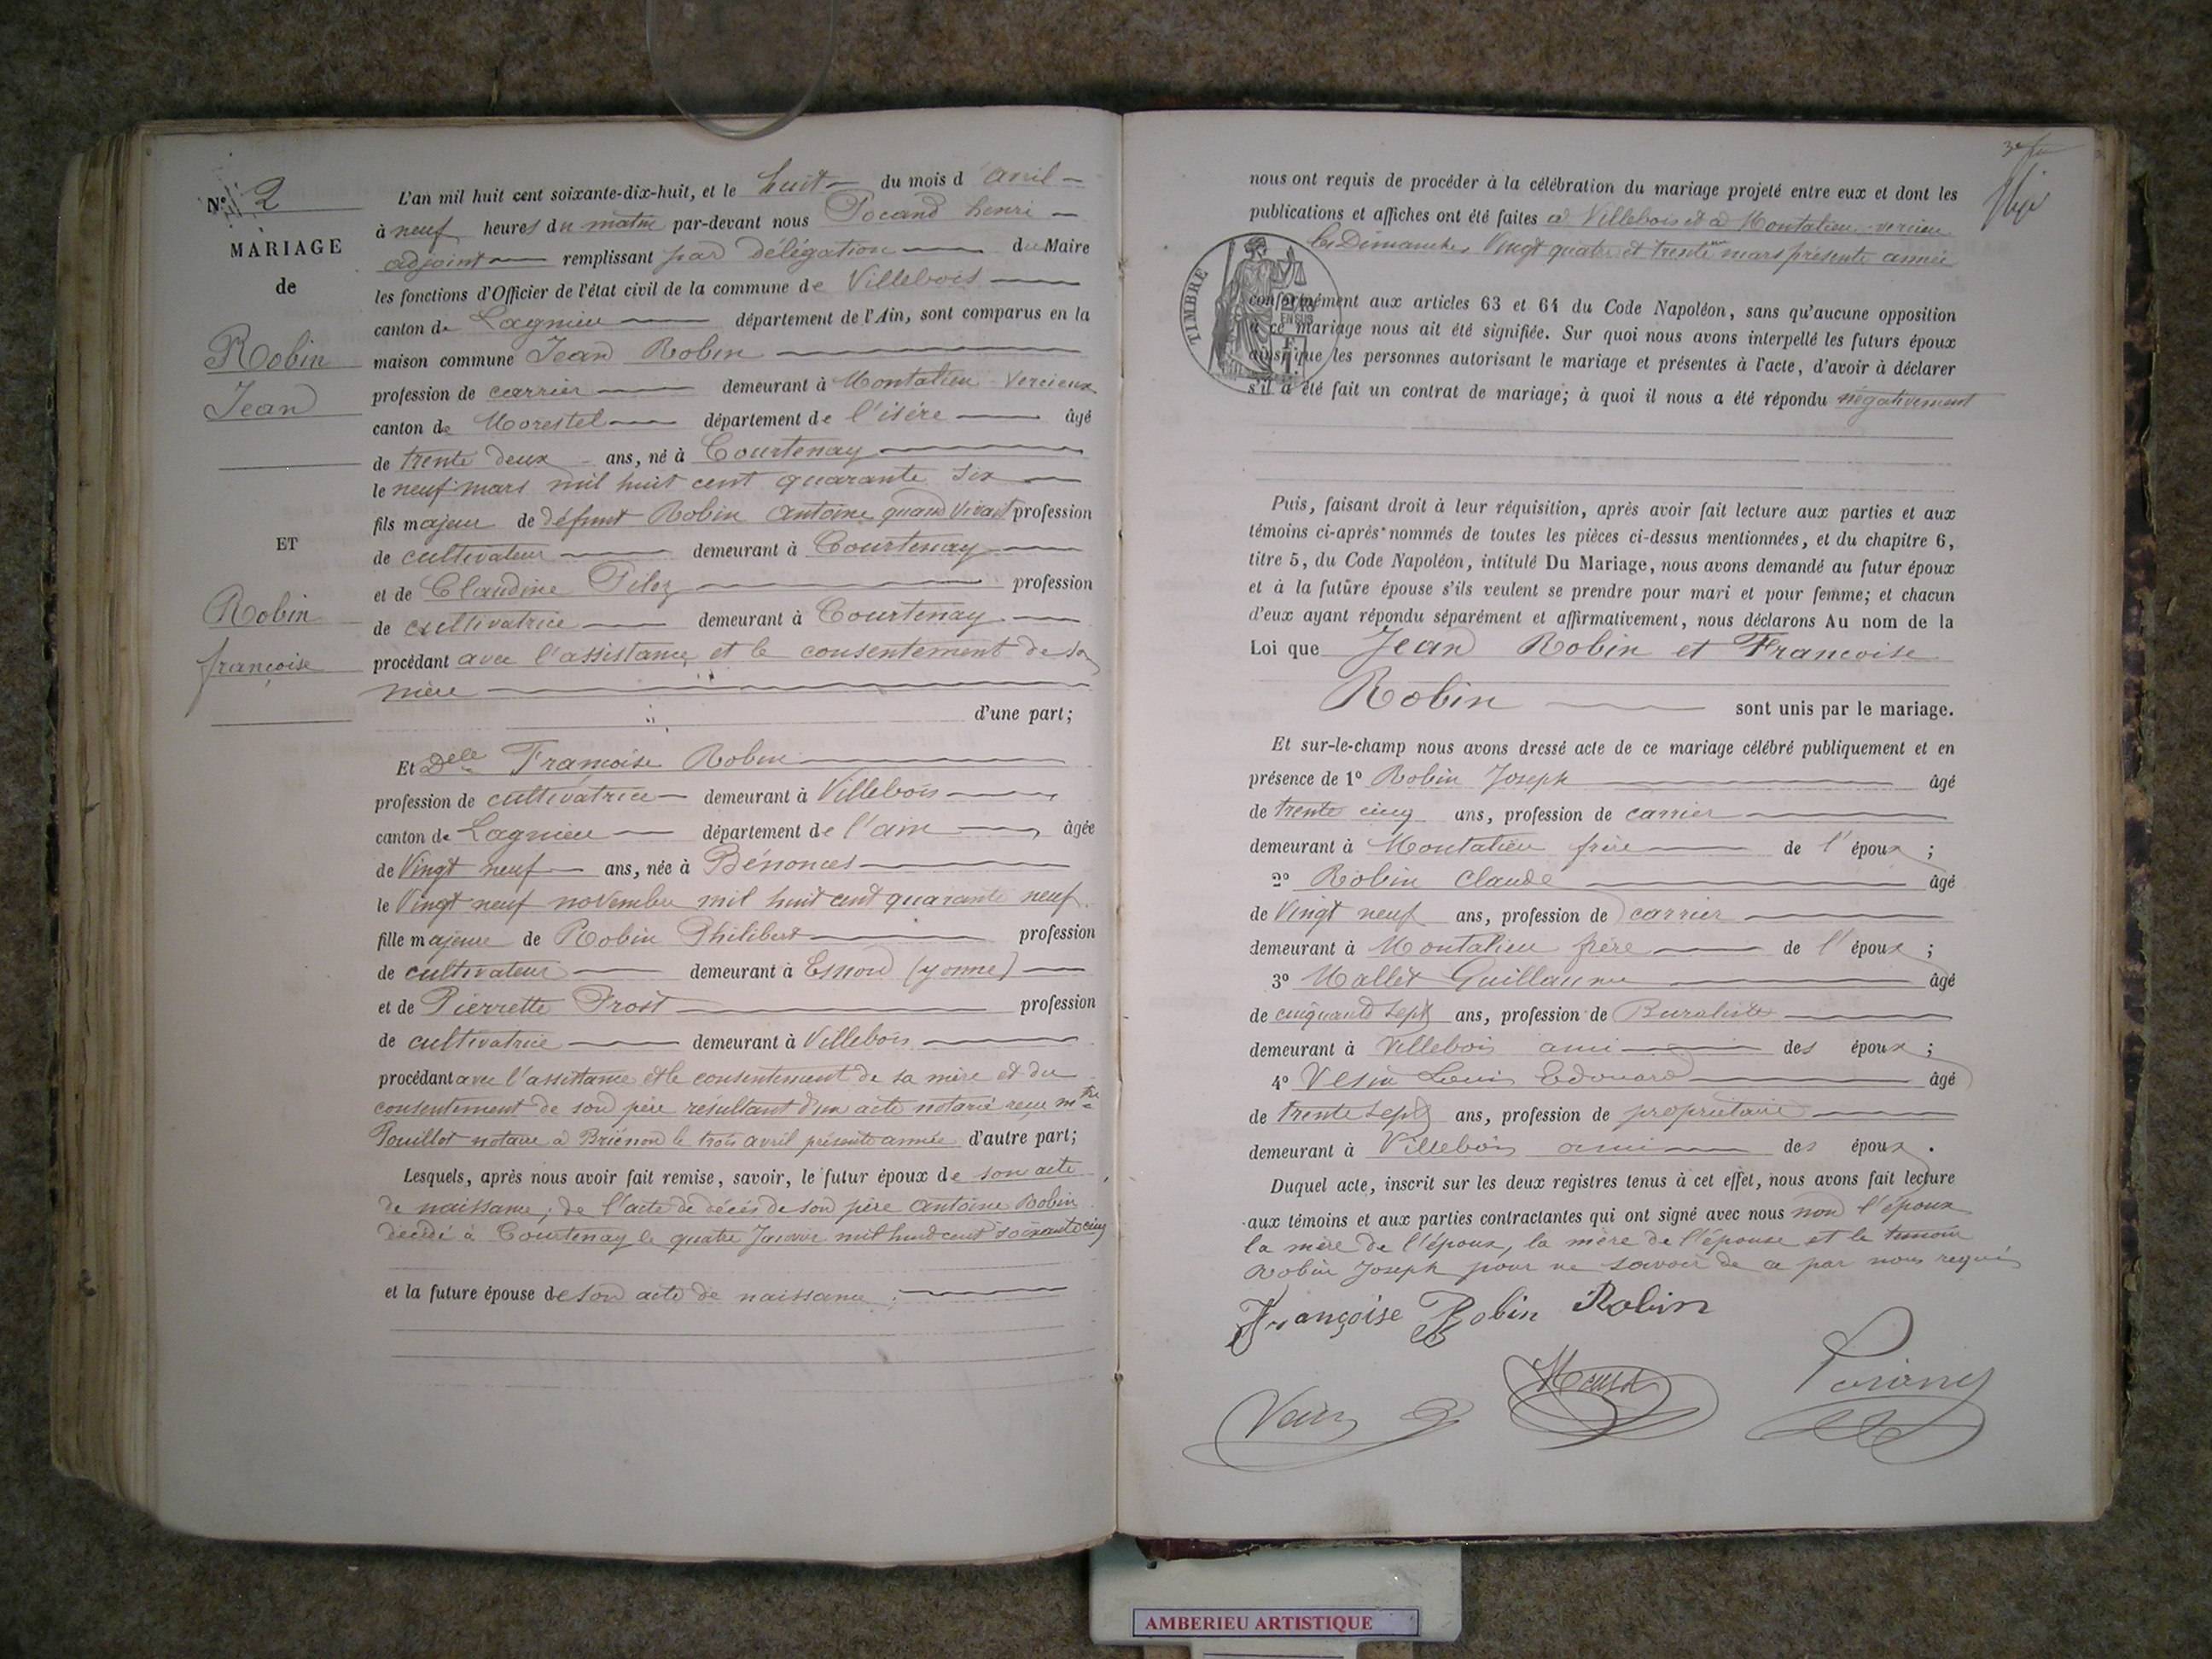 N° 2
MARIAGE
de
Robin
Jean
ET
Robin
françoise
L'an mil huit cent soixante-dix-huit, et le huit du mois d'avril
à neuf heures du matin par-devant nous Pocand henri
adjoint remplissant par délégation du Maire
les fonctions d'Officier de l'état civil de la commune de Villebois
canton de Lagnieu département de l'Ain, sont comparus en la
maison commune Jean Robin
profession de carrier demeurant à Montalieu Vercieux
canton de Morestel département de l'isère âgé
de trente deux ans, né à Courtenay
le neuf mars mil huit cent quarante six
fils majeur de défunt Robin Antoine quand vivait profession
de cultivateur demeurant à Courtenay
et de Claudine profession
de cultivatrice demeurant à Courtenay
procédant avec l'assistance et le consentement de sa
mère
d'une part;
Et Delle Francoise Robin
profession de cultivatrice demeurant à Villebois
canton de Lagnieu département de l'ain âgée
de Vingt neuf ans, née à Bénonces
le Vingt neuf novembre mil huit cent quarante neuf
fille majeure de Robin Philibert profession
de cultivateur demeurant à Esnon (yonne)
et de Pierrette Trost profession
de cultivatrice demeurant à Villebois
procédant avec l'assistance et le consentement de sa mère et du
consentement de son père résultant d'un acte notarié recu mtre
Pouillot notaire à Briénon le trois avril présente année d'autre part;
Lesquels, après nous avoir fait remise, savoir, le futur époux de son acte
de naissance; de l'acte de décès de son père Antoine Robin
décédé à Courtenay le quatre Janvier mil huit cent soixante cinq
et la future épouse de son acte de naissance
3e
nous ont requis de procéder à la célébration du mariage projeté entre eux et dont les
publications et affiches ont été faites à Villebois et à Montalieu-vercieu
les Dimanches Vingt quatre et trente un mars présente année
TIMBRE
conformément aux articles 63 et 64 du Code Napoléon, sans qu'aucune opposition
à ce mariage nous ait été signifiée. Sur quoi nous avons interpellé les futurs époux
ainsi que les personnes autorisant le mariage et présentes à l'acte, d'avoir à déclarer
s'il a été fait un contrat de mariage; à quoi il nous a été répondu négativement
Puis, faisant droit à leur réquisition, après avoir fait lecture aux parties et aux
témoins ci-après nommés de toutes les pièces ci-dessus mentionnées, et du chapitre 6,
titre 5, du Code Napoléon, intitulé Du Mariage, nous avons demandé au futur époux
et à la future épouse s'ils veulent se prendre pour mari et pour femme; et chacun
d'eux ayant répondu séparément et affirmativement, nous déclarons Au nom de la
Loi que Jean Robin et Francoise
Robin sont unis par le mariage.
Et sur-le-champ nous avons dressé acte de ce mariage célébré publiquement et en
présence de 1° Robin Joseph âgé
de trente cinq ans, profession de carrier
demeurant à Montalieu frère de l'époux ;
2° Robin Claude âgé
de Vingt neuf ans, profession de carrier
demeurant à Montalieu frère de l'époux ;
3° Mallet Guillaume âgé
de cinquante sept ans, profession de Buraliste
demeurant à Villebois ami des époux ;
4° Vesin Louis Edouard âgé
de trente sept ans, profession de propriétaire
demeurant à Villebois ami des époux .
Duquel acte, inscrit sur les deux registres tenus à cet effet, nous avons fait lecture
aux témoins et aux parties contractantes qui ont signé avec nous non l'époux
la mère de l'époux, la mère de l'épouse et le temoin
Robin Joseph pour ne savoir de ce par nous requis
Françoise Robin Robin
AMBERIEU ARTISTIQUE